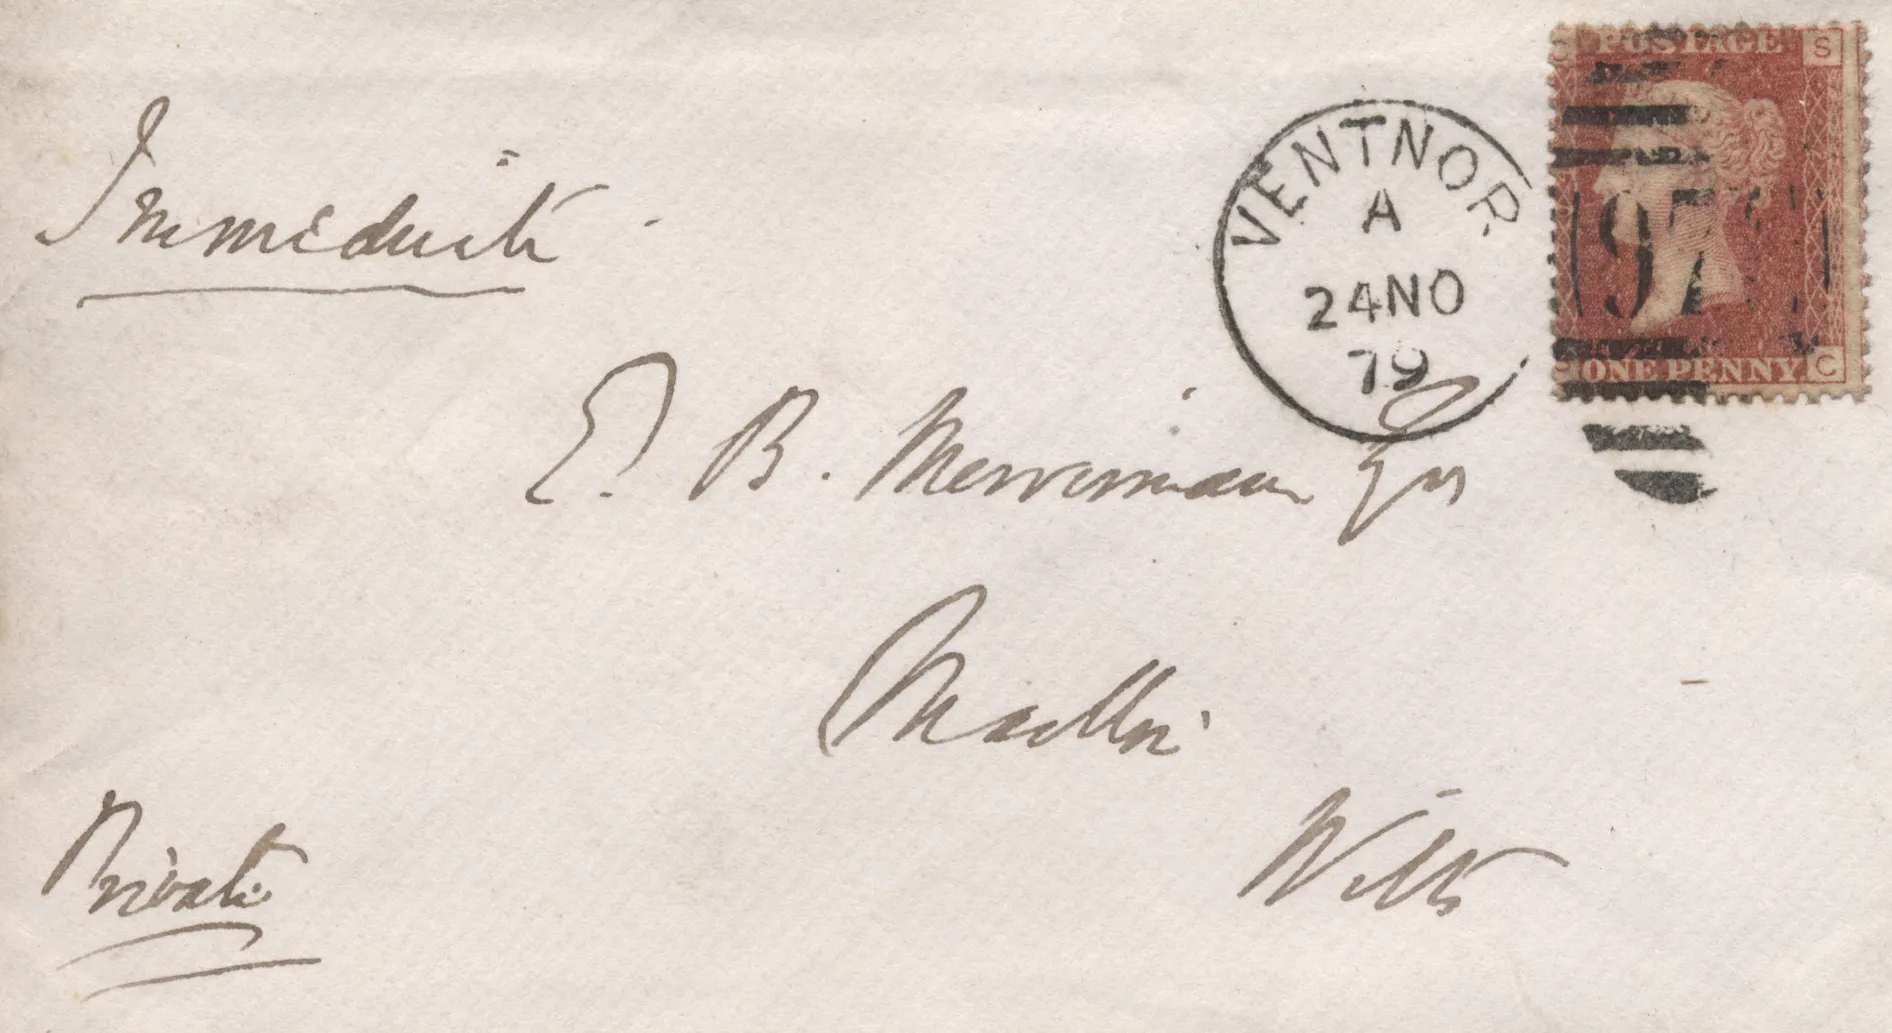 POSTAGE
S
VENTNOR
A
24 NO
79
97
ONE PENNY
C
Immediate
E. B. Merriman Esq
Wilts
Private